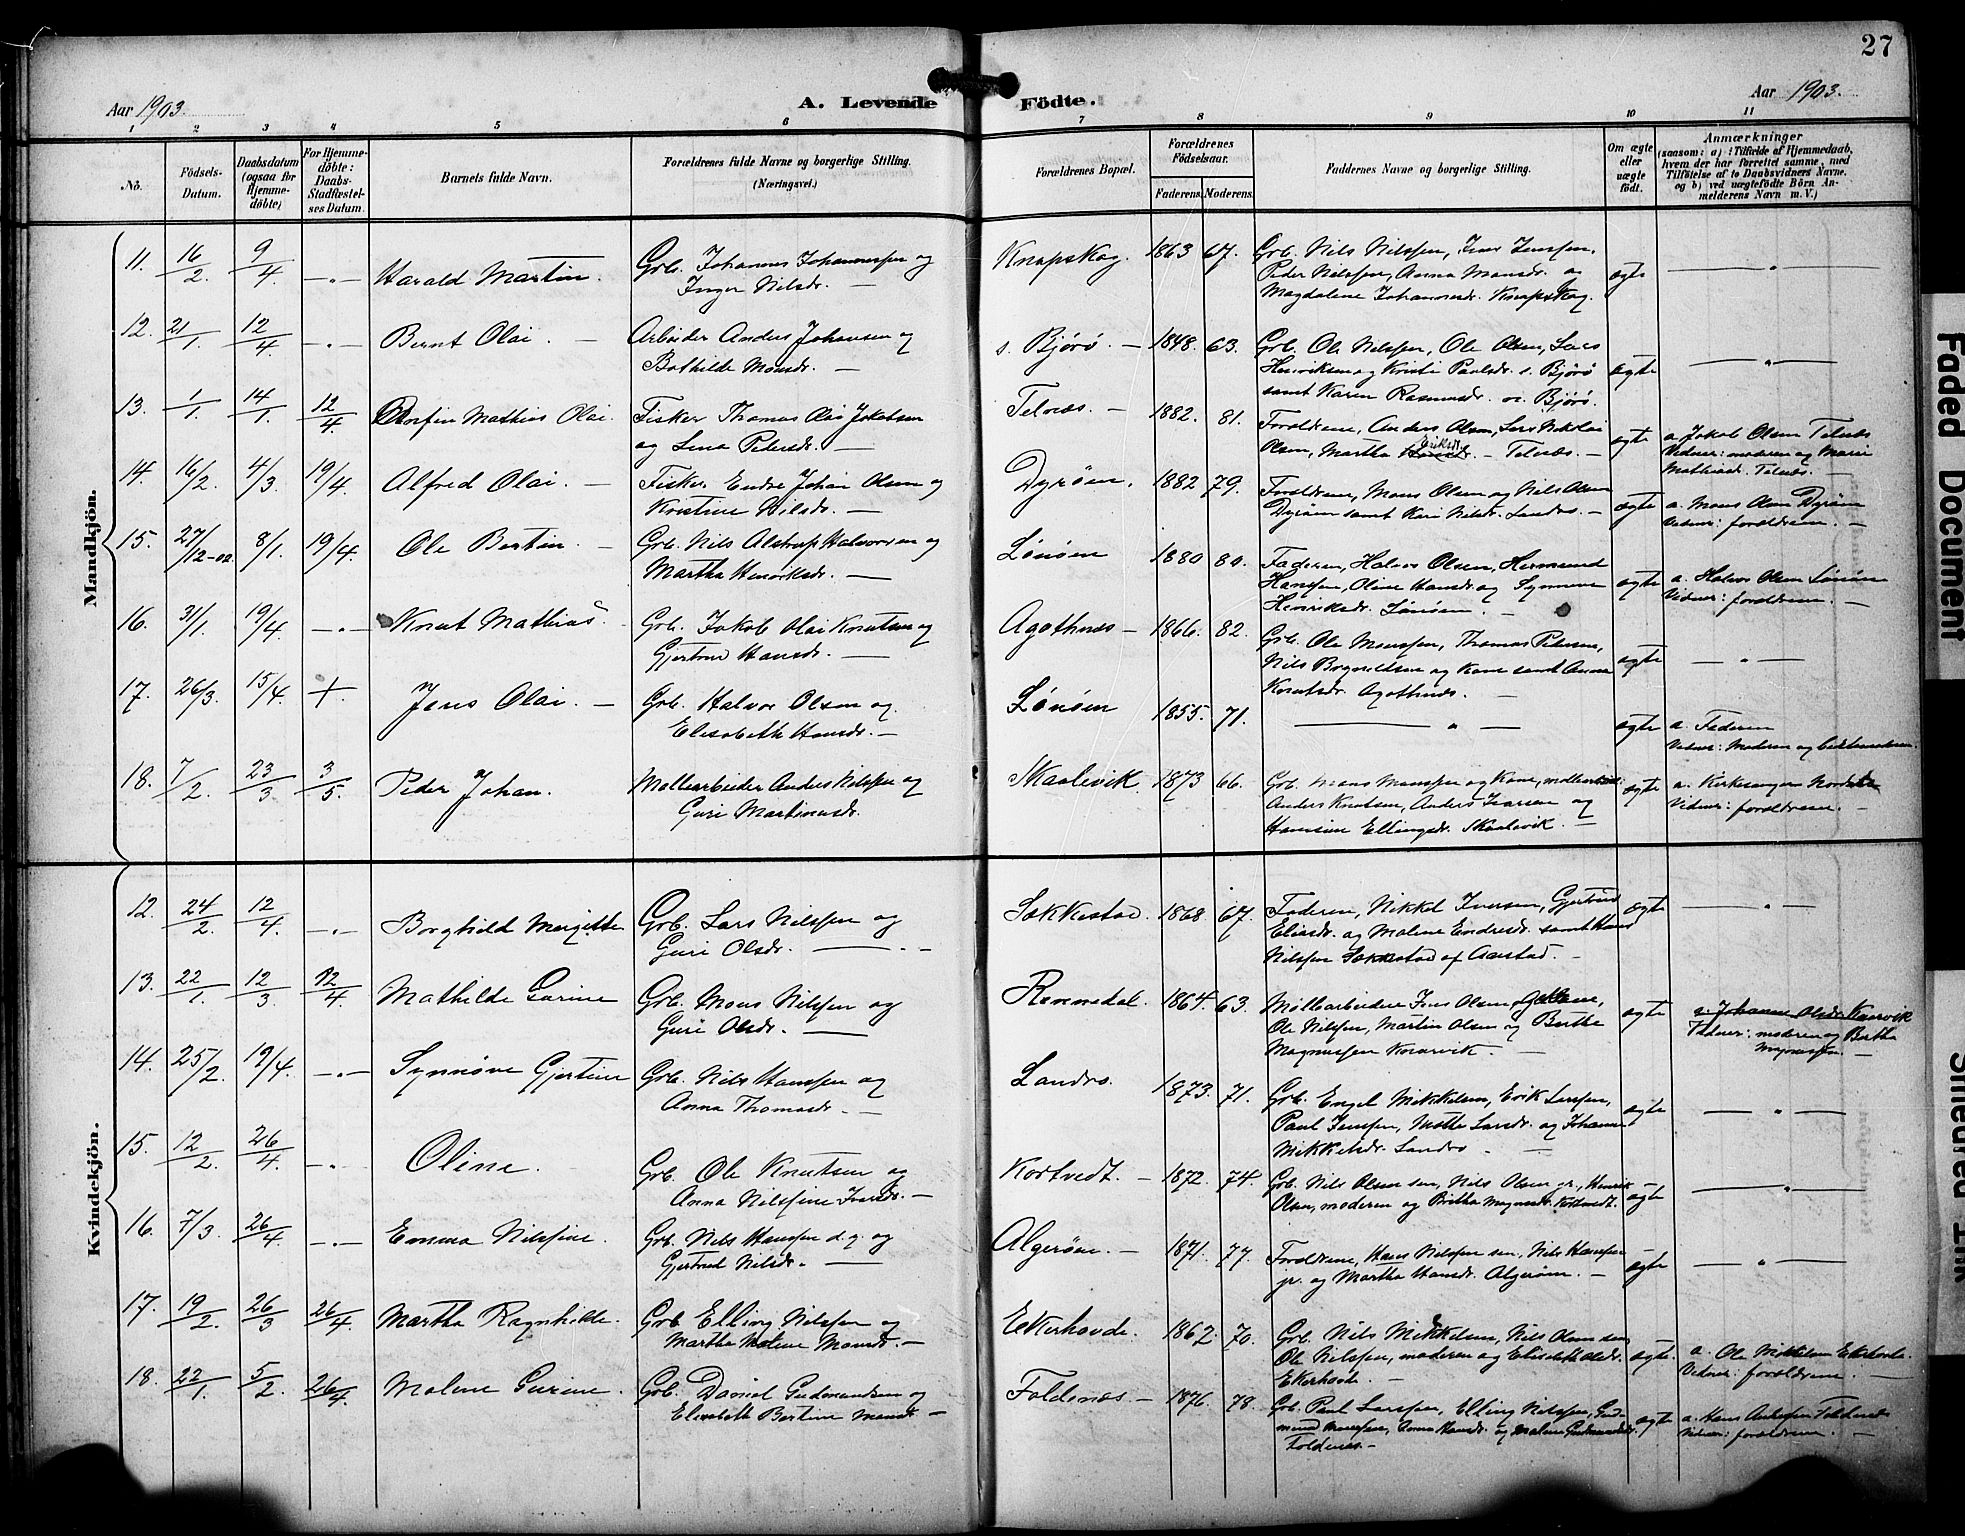 27
Aar 1903.
A. Levende Födte.
Aar 1903.
1 2 3 4 5 6 7 8 9 10 11
No.
Födsels-Datum.
Daabsdatum (ogsaa for Hjemme-döbte)
For Hjemme-döbte: Daabs-Stadfæstel-ses Datum.
Barnets fulde Navn.
Forældrenes fulde Navne og borgerlige Stilling. (Næringsvei.)
Forældrenes Bopæl.
Forældrenes Födselsaar.
Faderens. Moderens.
Faddernes Navne og borgerlige Stilling.
Om ægte eller uægte födt.
Anmærkninger
(saasom: a) i Tilfælde af Hjemmedaab, hvem der har forrettet samme, med Tilföielse af to Daabsvidners Navne, og b) ved uægtefödte Börn An-melderens Navn m. V.)
Mandkjön.
11. 16/2 9/4 -"- Harald Martin. Grb. Johannes Johannessen og
Inger Nilsdr. — Knapskog. 1863 67. Grb. Nils Nilssen, Jens Jenssen,
Peder Nilssen, Anna Monsdr. og
Magdalene Johannesdr. Knapskog. ægte — " —
12. 21/1. 12/4. -"- Bernt Olai. — Arbeider Anders Johansen og
Bothilde Monsdr. — s. Bjørø. — 1848. 63. Grb. Ole Nilssen, Ole Olsen, Lars
Henriksen og Kristi Paulsdr. s. Bjørø
samt Karen Rasmusdr. n. Bjørø. ægte — " —
13. 1/1. 14/1. 12/4. Mathias Olai. Fisker Thomas Olai Jakobsen
og Lena Pedersdr. — Telnæs. — 1882. 81. Forældrene, Anders Olsen, Lars Nikolai
Olsen, Martha Eriksdr. — Telnæs. — ægte a. Jakob Olsen Telnæs
Vidner: moderen og Marie
Mathiasd. Telnæs. —
14. 16/2. 4/3. 19/4. Alfred Olai. — Fisker Endre Johan Olsen og
Kristine Nilsdr. — Dyrøen. 1882 79. Forældrene, Mons Olsen og Nils Olsen
Dyrøen samt Kari Nilsdr. Landro. — ægte a. Mons Olsen Dyrøen
Vidner: forældrene. —
15. 27/12-02. 8/1. 19/4. Ole Bertin. — Grb. Nils Alstrup Halvorsen og
Martha Henriksdr. — Lønøen 1880 80. Faderen, Halvor Olsen, Hermund
Hanssen, Oline Hansdr. og Synneve
Henriksdr. Lønøen. — ægte a. Halvor Olsen Lønøen
Vidner: forældrene. —
16. 31/1. 19/4. -"- Knut Mathias. Grb. Jakob Olai Knutsen og
Gjertrud Hansdr. — Agothnæs — 1866. 82. Grb. Ole Monssen, Thomas Pedersen,
Nils Brynildsen og Kone samt Anna
Knutsdr. Agothnæs. — ægte — " —
17. 26/3. 15/4. + Jens Olai. — Grb. Halvor Olsen og
Elisabeth Hansdr. — Lønøen 1855. 71. — " — ægte a. Faderen
Vidner: Moderen og
18. 7/2. 23/3 3/5. Peder Johan. Møllearbeider Anders Nilssen og
Guri Martinusdr. Skaalevik 1873 66. Grb. Mons Monssen og Kone, møllearbeid:
Anders Knutsen, Anders Ivarsen og
Hansine Ellingsdr. Skaalevik. — ægte a. Kirkesanger
Vidner: forældrene. —
Kvindekjön.
12. 24/2. 12/4. -"- Borghild Mergitte Grb. Lars Nilssen og
Guri Olsdr. — Søkkestad. 1868. 67. Faderen, Nikkel Iversen, Gjertrud
Eliasdr. og Malene Endresdr. samt Hans
Nilssen Søkkestad af Aarstad. — ægte — " —
13. 22/1. 12/3 12/4. Mathilde Gurine Grb. Mons Nilssen og
Guri Olsdr. — Ronnedal. 1864. 63. Møllearbeidere Jens Olsen,
Ole Nilssen, Martin Olsen og Berthe
Magnussen Knarvik. — ægte a. Johanne Olsdr. Knarvik
Vidner: moderen og Bertha
Magnussen. —
14. 25/2. 19/4. -"- Synnøve Gjertine Grb. Nils Hanssen og
Anna Thomasdr. — Landro. 1873. 71. Grb. Engel Mikkelsen, Erik Larssen,
Paul Jenssen, Mette Larsdr. og Johanne
Mikkelsdr. Landro. — ægte — " —
15. 12/2. 26/4. -"- Oline. Grb. Ole Knutsen og
Anna Nilssine Ivarsdr. — Kortvedt. — 1872. 74. Grb. Nils Olsen sen., Nils Olsen jr., Henrik
Olsen, moderen og Britha Magnusdr. Kortvedt. ægte — " —
16. 7/3. 26/4. -"- Emma Nilssine. Grb. Nils Hanssen d.y. og
Gjertrud Nilsdr. — Algerøen. — 1871. 77. Forældrene, Hans Nilssen sen., Nils Hanssen
jr. og Martha Hansdr. Algerøen. — ægte — " —
17. 19/2. 26/3 26/4. Martha Ragnhilde. Grb. Elling Nilssen og
Martha Malene Monsdr. — Ekerhovde. 1862. 70. Grb. Nils Mikkelsen, Nils Olsen sen,
Ole Nilssen, moderen og Elisabeth Olsdr.
Ekerhovde. — ægte. a. Ole Mikkelsen Ekerhovde.
Vidner: forældrene. —
18. 22/1. 5/2. 26/4. Malene Gurine. Grb. Daniel Gudmundsen og
Elisabeth Bertine Monsdr. — Foldnæs. — 1876. 78. Grb. Paul Larssen, Elling Nilssen, Gud-
mund Monssen, Anna Hansdr. og Malene Gudmundsdr.
Foldnæs. — ægte a. Hans Foldnæs
Vidner: forældrene. —
Faded Document
Smeared Ink